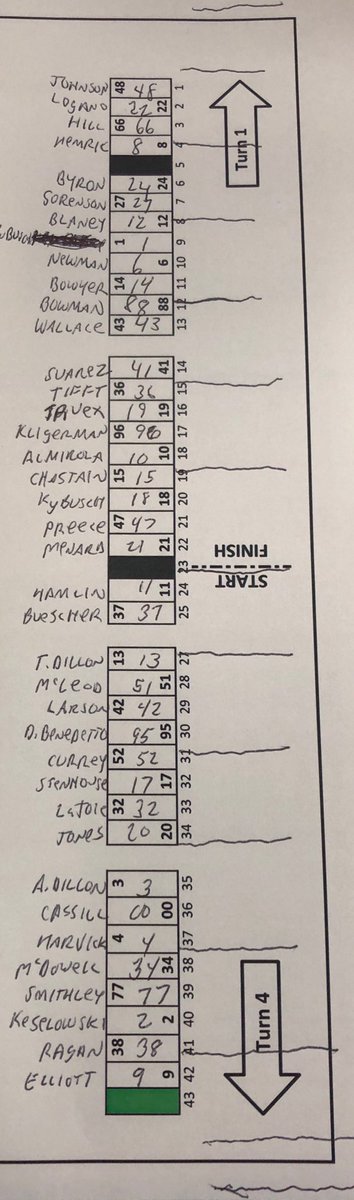 JOHNSON 48 48 1
LOGANO 22 22 2
HILL 66 66 3
HEMRIC 8 8 4
5
BYRON 24 24 6
SORENSON 27 27 7
BLANEY 12 12 8
BUSCH 1 1 9
NEWMAN 6 6 10
BOWYER 14 14 11
BOWMAN 88 88 12
WALLACE 43 43 13
Turn 1
SUAREZ 41 41 14
TIFFT 36 36 15
TRUEX 19 19 16
KLIGERMAN 96 96 17
ALMIROLA 10 10 18
CHASTAIN 15 15 19
KyBUSCH 18 18 20
PREECE 47 47 21
MENARD 21 21 22
23
HAMLIN 11 11 24
BUESCHER 37 37 25
FINISH
START
T. DILLON 13 13 27
McLEOD 51 51 28
LARSON 42 42 29
D. BENEDETTO 95 95 30
CURREY 52 52 31
STENHOUSE 17 17 32
LAJOIE 32 32 33
JONES 20 20 34
A. DILLON 3 3 35
CASSILL 00 00 36
HARVICK 4 4 37
McDOWELL 34 34 38
SMITHLEY 77 77 39
KESELOWSKI 2 2 40
RAGAN 38 38 41
ELLIOTT 9 9 42
43
Turn 4